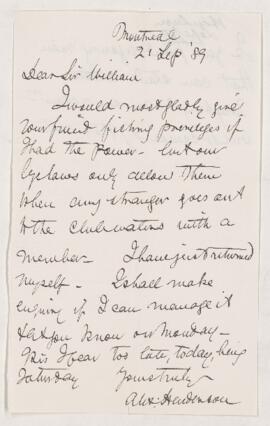 Montreal
21 Sep '89
Dear Sir William
I would most gladly give
your friend fishing privileges if
I had the Power - but our
bye laws only allow them
when any stranger goes out
to the club waters with a
member - I have just returned
myself - I shall make
enquiry if I can manage it
let you know on Monday -
this I fear too late, today, being
Saturday
Yours truly
Alex Henderson